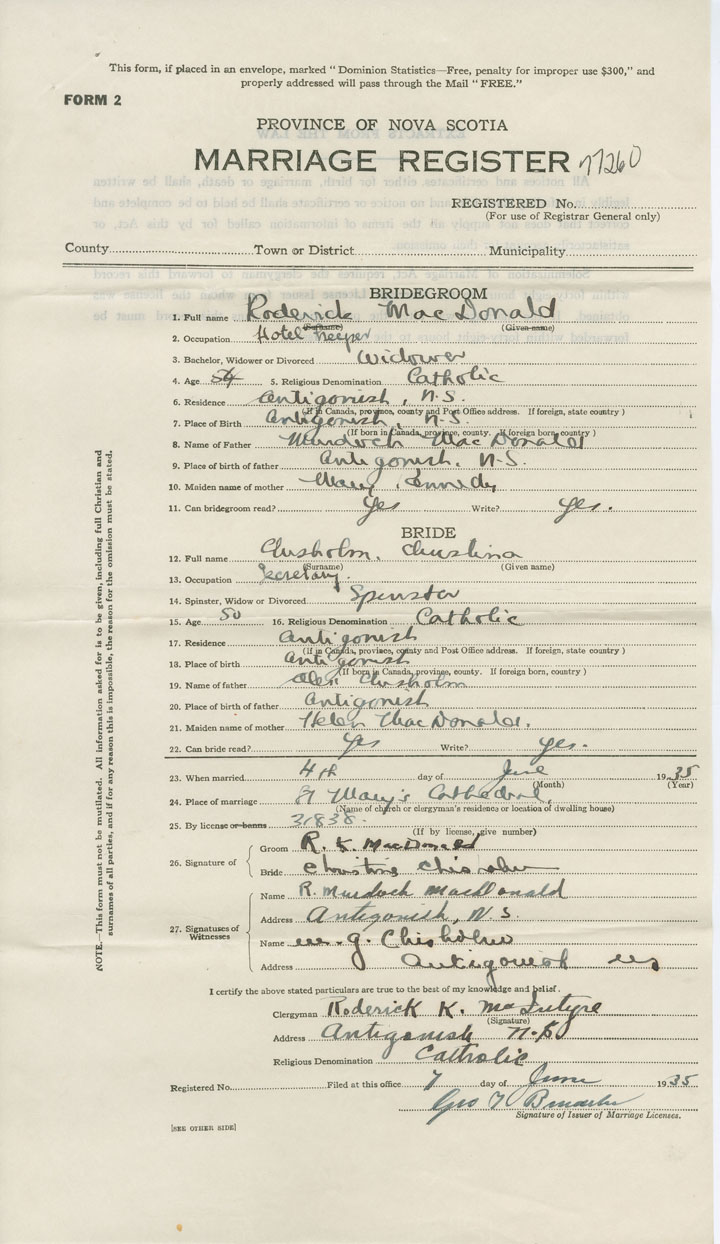 This form, if placed in an envelope, marked " Dominion Statistics—Free, penalty for improper use $300," and
properly addressed will pass through the Mail "FREE."
FORM 2
PROVINCE OF NOVA SCOTIA
MARRIAGE REGISTER 77260
REGISTERED No.
(For use of Registrar General only)
County Town or District Municipality
BRIDEGROOM
1. Full name Roderick MacDonald
(Surname) (Given name)
2. Occupation Hotel Keeper
3. Bachelor, Widower or Divorced Widower
4. Age 54 5. Religious Denomination Catholic
6. Residence Antigonish, N.S.
(If in Canada, province, county and Post Office address. If foreign, state country )
7. Place of Birth Antigonish, N.S.
(If born in Canada, province, county. If foreign born, country )
8. Name of Father Murdoch MacDonald
9. Place of birth of father Antigonish, N.S.
10. Maiden name of mother Mary Kennedy
11. Can bridegroom read? Yes Write? Yes.
BRIDE
12. Full name Chisholm, Christina
(Surname) (Given name)
13. Occupation Secretary.
14. Spinster, Widow or Divorced Spinster
15. Age 50 16. Religious Denomination Catholic
17. Residence Antigonish
(If in Canada, province, county and Post Office address. If foreign, state country )
18. Place of birth Antigonish
(If born in Canada, province, county. If foreign born, country )
19. Name of father Chisholm
20. Place of birth of father Antigonish
21. Maiden name of mother Helen MacDonald.
22. Can bride read? Yes Write? Yes.
23. When married 4th day of June 1935
(Month) (Year)
24. Place of marriage St Mary's Cathedral,
(Name of church or clergyman's residence or location of dwelling house)
25. By license or banns 31838.
(If by license, give number)
26. Signature of Groom R. K. MacDonald
Bride Christina Chisholm
27. Signatures of Witnesses Name R. Murdoch MacDonald
Address Antigonish, N.S.
Name W. G. Chisholm
Address Antigonish NS
I certify the above stated particulars are true to the best of my knowledge and belief.
Clergyman Roderick K. MacIntyre
(Signature)
Address Antigonish N.S
Religious Denomination Catholic
Registered No. Filed at this office 7 day of June 1935
Geo
Signature of Issuer of Marriage Licenses.
[SEE OTHER SIDE]
NOTE.—This form must not be mutilated. All information asked for is to be given, including full Christian and
surnames of all parties, and if for any reason this is impossible, the reason for the omission must be stated.